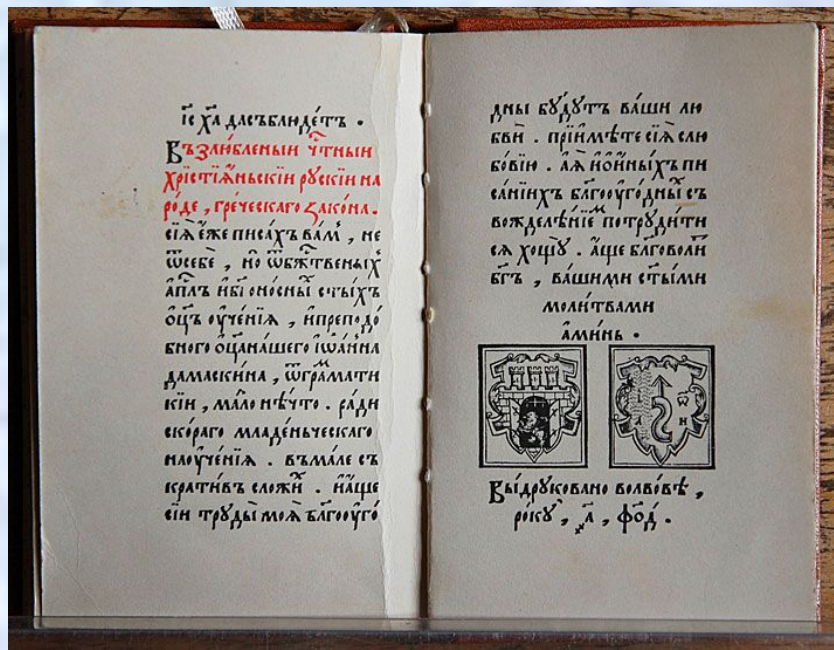 і҃с х҃а дасъблюде́тъ .
Възлю́бленыи чⷭ҇тныи
хрїстїа́ньскїи рꙋ́скїи на
ро́де , гре́ческаго зако́на .
сїѧ̀ е́же писа́хъ ва́мъ , не
ѿсебѐ , но ѿбж҃твеныхъ
а҆п҃лъ и҆бг҃оно́сны ст҃ы́хъ
ѻ҆ц҃ъ оу҆че́нїѧ , и҆преподо́
бного ѻ҆ц҃анашего і҆ѡа́нна
дамаски́на , ѿгра́мати
кїи , ма́ло нѣ́что . ра́ди
ско́раго младе́ньческаго
наоуче́нїѧ . въма́ле съ
крати́въ сложи́ . и҆а҆́ще
сїи трꙋды̀ моѧ̀ бл҃гооуго́
дны бꙋ́дꙋтъ ва́ши лю
бви̂ . прїи́мѣте сїѧ̀ слю
бо́вїю . а҆ѧ̀ и҆ои҆ны́хъ пи
са́нїихъ бл҃гооуго́дны съ
вожделѣ́нїемъ потрꙋди́ти
сѧ хощꙋ̀ . а҆́ще бл҃говоли́
бг҃ъ , ва́шими ст҃ы́ми
моли́твами
а҆ми́нь .
Вы́дрꙋковано волво́вѣ ,
ро́кꙋ , ҂а҃ , фо҃д .